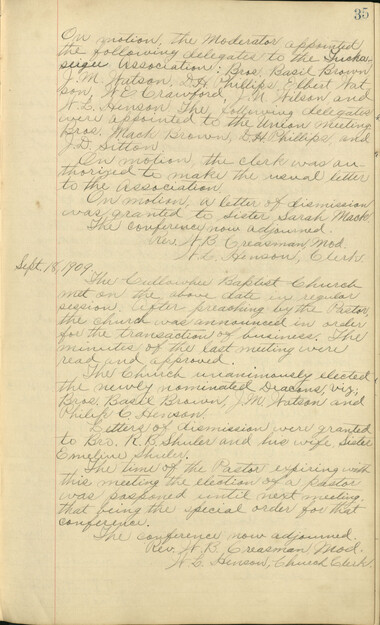 35
On motion, the Moderator appointed
the following delegates to the Tucka-
seigee Association: Bros. Basil Brown
J. M. Watson, D. H. Phillips, Elbert Wat-
son, W. E. Crawford, J. N. Wilson and
W. C. Henson. The following delegates
were appointed to the Union Meeting
Bros. Mack Brown, D. H. Phillips, and
J. D. Sitton.
On motion, the clerk was au-
thorized to make the usual letter
to the Association.
On motion, a letter of dismission
was granted to Sister Sarah Mack.
The conference now adjourned.
Rev. A. B. Creasman, Mod.
W. C. Henson, Clerk.
Sept. 18, 1909.
The Cullowhee Baptist Church
met on the above date in regular
session. After preaching by the Pastor,
the church was announced in order
for the transaction of business. The
minutes of the last meeting were
read and approved.
The Church unanimously elected
the newly nominated Deacons, viz;
Bros. Basil Brown, J. M. Watson and
Philip C. Henson.
Letters of dismission were granted
to Bro. R. B. Shuler and his wife Sister
Emeline Shuler.
The time of the Pastor expiring with
this meeting the election of a pastor
was posponed until next meeting.
that being the special order for that
conference.
The conference now adjourned.
Rev. A. B. Creasman Mod.
W. C. Henson, Church Clerk.